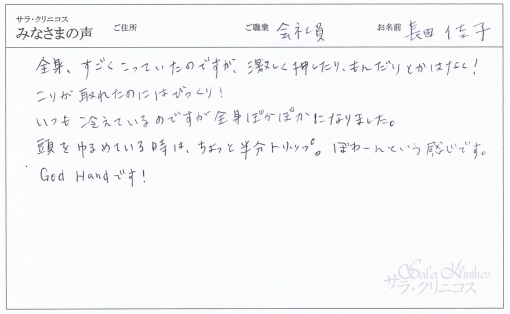 サラ・クリニコス
みなさまの声 ご住所 ご職業 会社員 お名前 長田 佳子
全身、すごくこっていたのですが、激しく押したり、もんだりとかはなし!
こりが取れたのにはびっくり!
いつも冷えているのですが全身ぽかぽかになりました。
頭をゆるめている時は、ちょっと半分トリップ。ぽわーんという感じです。
God Handです!
Sala Klinikos
サラ・クリニコス